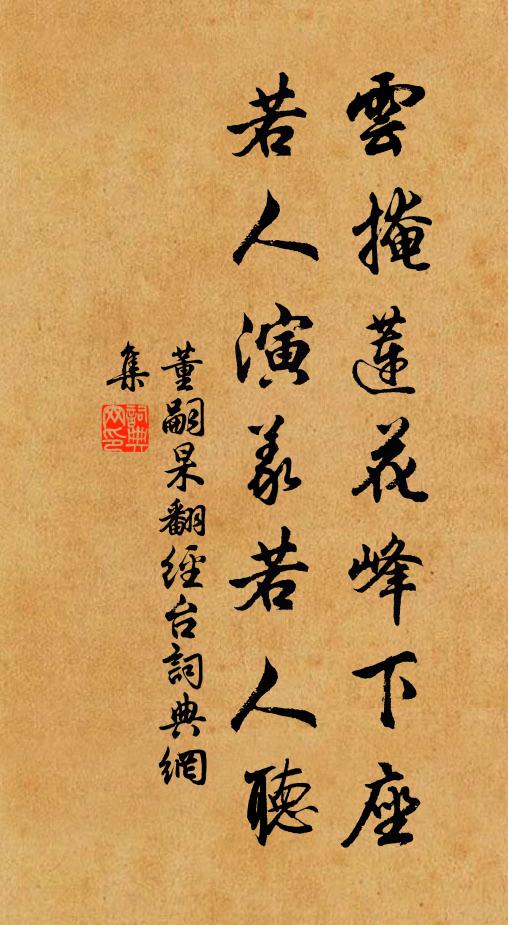 雲掩蓮花峰下座
若人演義若人聽
董嗣杲翻經台詞典網
集
詞典
网印